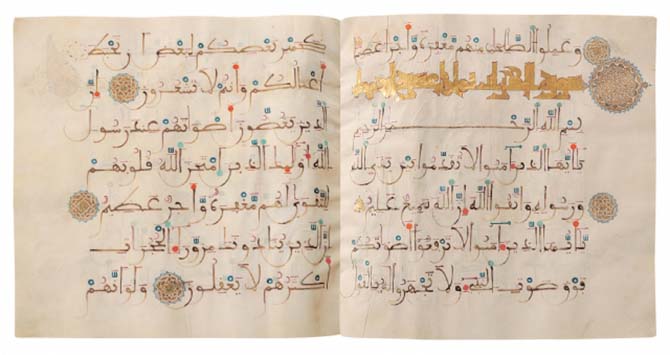 وعملوا الصلحت منهم مغفرة وأجرا عظيما
سورة الحجرات
بسم الله الرحمن الرحيم
يأيها الذين ءامنوا لا تقدموا بين يدي الله
ورسوله واتقوا الله إن الله سميع عليم
يأيها الذين ءامنوا لا ترفعوا أصوتكم
فوق صوت النبيء ولا تجهروا له بالقول
كجهر بعضكم لبعض أن تحبط
أعملكم وأنتم لا تشعرون إن
الذين يغضون أصوتهم عند رسول
الله أوليك الذين امتحن الله قلوبهم
للتقوى لهم مغفرة وأجر عظيم
إن الذين ينادونك من وراء الحجرات
أكثرهم لا يعقلون ولو أنهم